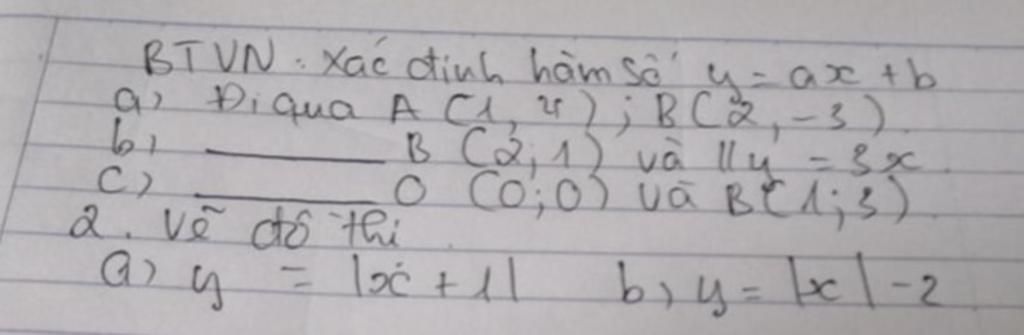 BTVN: Xác định hàm số y = ax + b
a) Đi qua A (1, 4); B(2, -3).
b) ______ B (2, 1) và // y = 3x.
c) ______ O (0; 0) và B(1; 3)
2. Vẽ đồ thị
a) y = |x + 1| b) y = |x| - 2